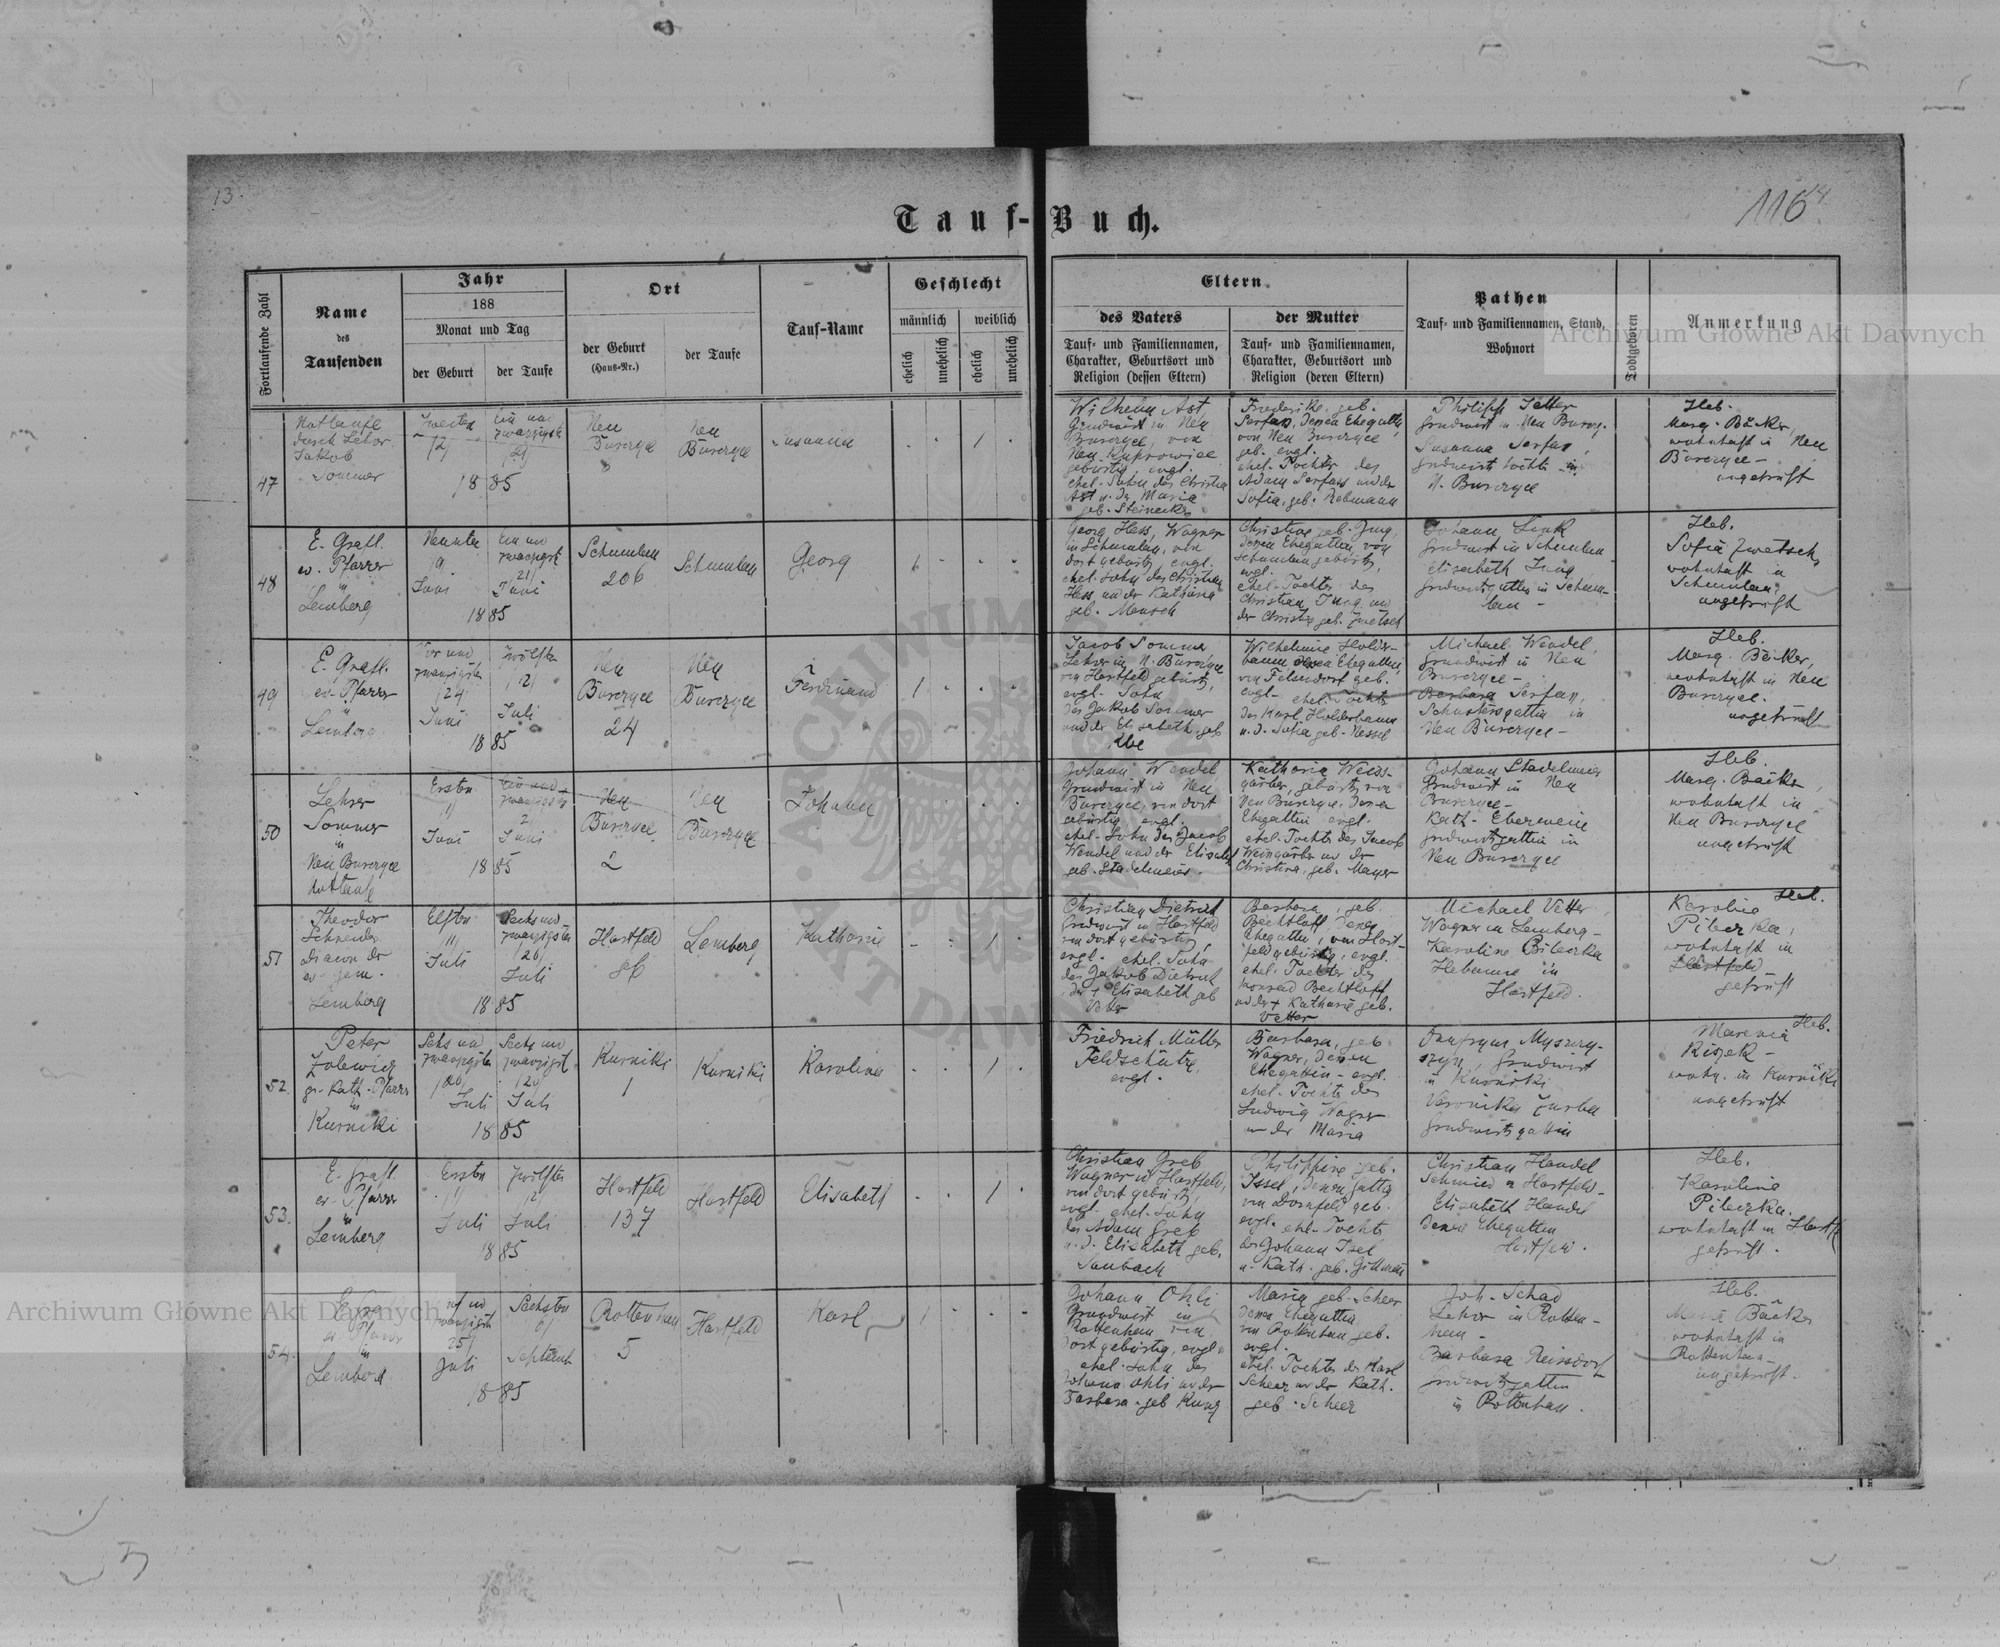 13.
116
14
Tauf-Buch.
Fortlaufende Zahl
Name
des
Taufenden
Jahr
188
Monat und Tag
der Geburt
der Taufe
Ort
der Geburt
(Haus-Nr.)
der Taufe
Tauf-Name
Geschlecht
männlich
weiblich
ehelich
unehelich
ehelich
unehelich
Eltern
des Vaters
Tauf- und Familiennamen,
Charakter, Geburtsort und
Religion (dessen Eltern)
der Mutter
Tauf- und Familiennamen,
Charakter, Geburtsort und
Religion (deren Eltern)
Pathen
Tauf- und Familiennamen, Stand,
Wohnort
Todtgeboren
Anmerkung
47
Nottaufe
durch Lehrer
Jakob
Sommer
Zweiten
/2/
Ein und
zwanzigsten
/21/
1885
Neu
Burczyce
Neu
Burczyce
Susanna
Wilhelm Ast
Grundwirt in Neu
Burczyce, von
Neu Kuprowice
gebürtig, evgl.
ehel. Sohn des Christian
Ast u. der Maria
geb. Steinecker
Friederike geb.
Serfas, dessen Ehegattin,
von Neu Burczyce
geb. evgl.
ehel. Tochter des
Adam Serfass und der
Sofia, geb. Rebmann
Philipp
Grundwirt in Neu Burczy.
Susanna Serfas,
Grundwirts tochter in
N. Burczyce
Heb.
Marg. Bäcker,
wohnhaft in Neu
Burczyce -
ungeprüft
48
E. Grafl.
ev. Pfarrer
in
Lemberg
Neunten
/9/
Juni
Ein und
zwanzigst.
/21/
Juni
1885
Schumlau
206
Schumlau
Georg
Georg Hess, Wagner
in Schumlau, von
dort gebürtig evgl.
ehel. Sohn des Christian
Hess und der Katharina
geb. Mensch
Christine geb. Jung,
dessen Ehegattin, von
Schumlau gebürtig,
evgl.
ehel. Tochter des
Christian Jung und
der Christine geb. Zwetsch
Johann Link
Grundwirt in Schumlau
Elisabeth Jung
Grundwirtsgattin in Schum-
lau -
Heb.
Sofia Zwetsch,
wohnhaft in
Schumlau,
ungeprüft
49
E. Grafl.
ev. Pfarrer
in
Lemberg
Vier und
zwanzigsten
/24/
Juni
Zwölften
/12/
Juli
1885
Neu
Burczyce
24
Neu
Burczyce
Ferdinand
Jacob Sommer
Lehrer in N. Burczyce
von Hartfeld gebürtig,
evgl. Sohn
des Jakob Sommer
und der Elisabeth geb.
Wilhelmine Holder-
baum dessen Ehegattin,
von Felsendorf geb.
evgl. ehel. Tochter
des Karl Holderbaum
u. d. Sofia geb. Nessel
Michael Wendel,
Grundwirt in Neu
Burczyce -
Barbara Serfas,
Schustersgattin in
Neu Burczyce -
Heb.
Marg. Bäcker,
wohnhaft in Neu
Burczyce.
ungeprüft
50
Lehrer
Sommer
in
Neu Burczyce
Nottaufe
Ersten
/1/
Juni
Ein und
zwanzigsten
21
Juni
1885
Neu
Burczyce
2
Neu
Burczyce
Johann
Johann Wendel,
Grundwirt in Neu
Burczyce, von dort
gebürtig evgl.
ehel. Sohn des Jacob
Wendel und der Elisabeth
geb. Stadelmeier.
Katharia Weiss-
gärber, gebürtig von
Neu Burczyce, dessen
Ehegattin evgl.
ehel. Tochter des Jacob
Weingärber und der
Christina, geb. Mayer
Johann Stadelmeier
Grundwirt in Neu
Burczyce -
Kath. Eberwein
Grundwirtsgattin in
Neu Burczyce
Heb.
Marg. Bäcker,
wohnhaft in
Neu Burczyce
ungeprüft
51
Theodor
Schneider
Diacon der
ev. Gem.
Lemberg
Elften
/11/
Juli
Sechs und
zwanzigsten
/26/
Juli
1885
Hartfeld
Lemberg
Katharine
Christian Dietrich
Grundwirt in Hartfeld
von dort gebürtig,
evgl. ehel. Sohn
des Jakob Dietrich
der + Elisabeth geb
Vetter
Barbara, geb
Bechtloff, dessen
Ehegattin, von Hart-
feld gebürtig, evgl.
ehel. Tochter des
Konrad Bechtloff
und der + Katharine geb.
Vetter
Michael Vetter
Wagner in Lemberg -
Karoline Pilarzka
Hebamme in
Hartfeld.
Heb.
Karoline
Pilarzka,
wohnhaft in
Hartfeld
geprüft
52.
Peter
gr. kath. Pfarrer
in
Kurniki
Sechs und
zwanzigsten
/26/
Juli
Sechs und
zwanzigst.
/26/
Juli
1885
Kurniki
1
Kurniki
Karolina
Friedrich Müller
Feldschütze,
evgl.
Barbara, geb
Wagner, dessen
Ehegattin - evgl.
ehel. Tochter des
Ludwig Wagner
und der Maria
Grundwirt
in Kurniki
Veronika
Grundwirtsgattin
Heb.
wohn. in Kurniki
ungeprüft
53.
E. Grafl.
ev. Pfarrer
in
Lemberg
Ersten
/1/
Juli
Zwölften
/12/
Juli
1885
Hartfeld
137
Hartfeld
Elisabeth
Christian Greb
Wagner in Hartfeld,
von dort gebürtig,
evgl. ehel. Sohn
des Adam Greb
u. d. Elisabeth geb.
Saubach
Philippine geb.
Issel, dessen Gattin
von Dornfeld geb.
evgl. ehel. Tochter
des Johann Isel
u. Kath. geb. Gittmann
Christian Handel
Schmied in Hartfeld -
Elisabeth Handel
dessen Ehegattin
Hartfeld.
Heb.
Karoline
Pilarzka.
wohnhaft in Hartf
geprüft.
54.
ev. Pfarrer
in
Lemberg
zwanzigsten
25/
Juli
Sechsten
/6/
September
1885
Rottenhan
5
Hartfeld
Karl
Johann Ohli
Grundwirt in
Rottenhan von
dort gebürtig, evgl.
ehel. Sohn des
Johann Ohli und der
Barbara geb Kung
Maria geb. Scheer
dessen Ehegattin,
von Rottenhan geb.
evgl.
ehel. Tochter des Karl
Scheer und der Kath.
geb. Scheer
Joh. Schad
Lehrer in Rotten-
han -
Barbara Reissdorf
Grundwirtsgattin
in Rottenhan.
Heb.
Maria Bäcker
wohnhaft in
Rottenhan -
ungeprüft.
Archiwum Główne Akt Dawnych
Archiwum Główne Akt Dawnych
ARCHIWUM GŁÓWNE AKT DAWNYCH